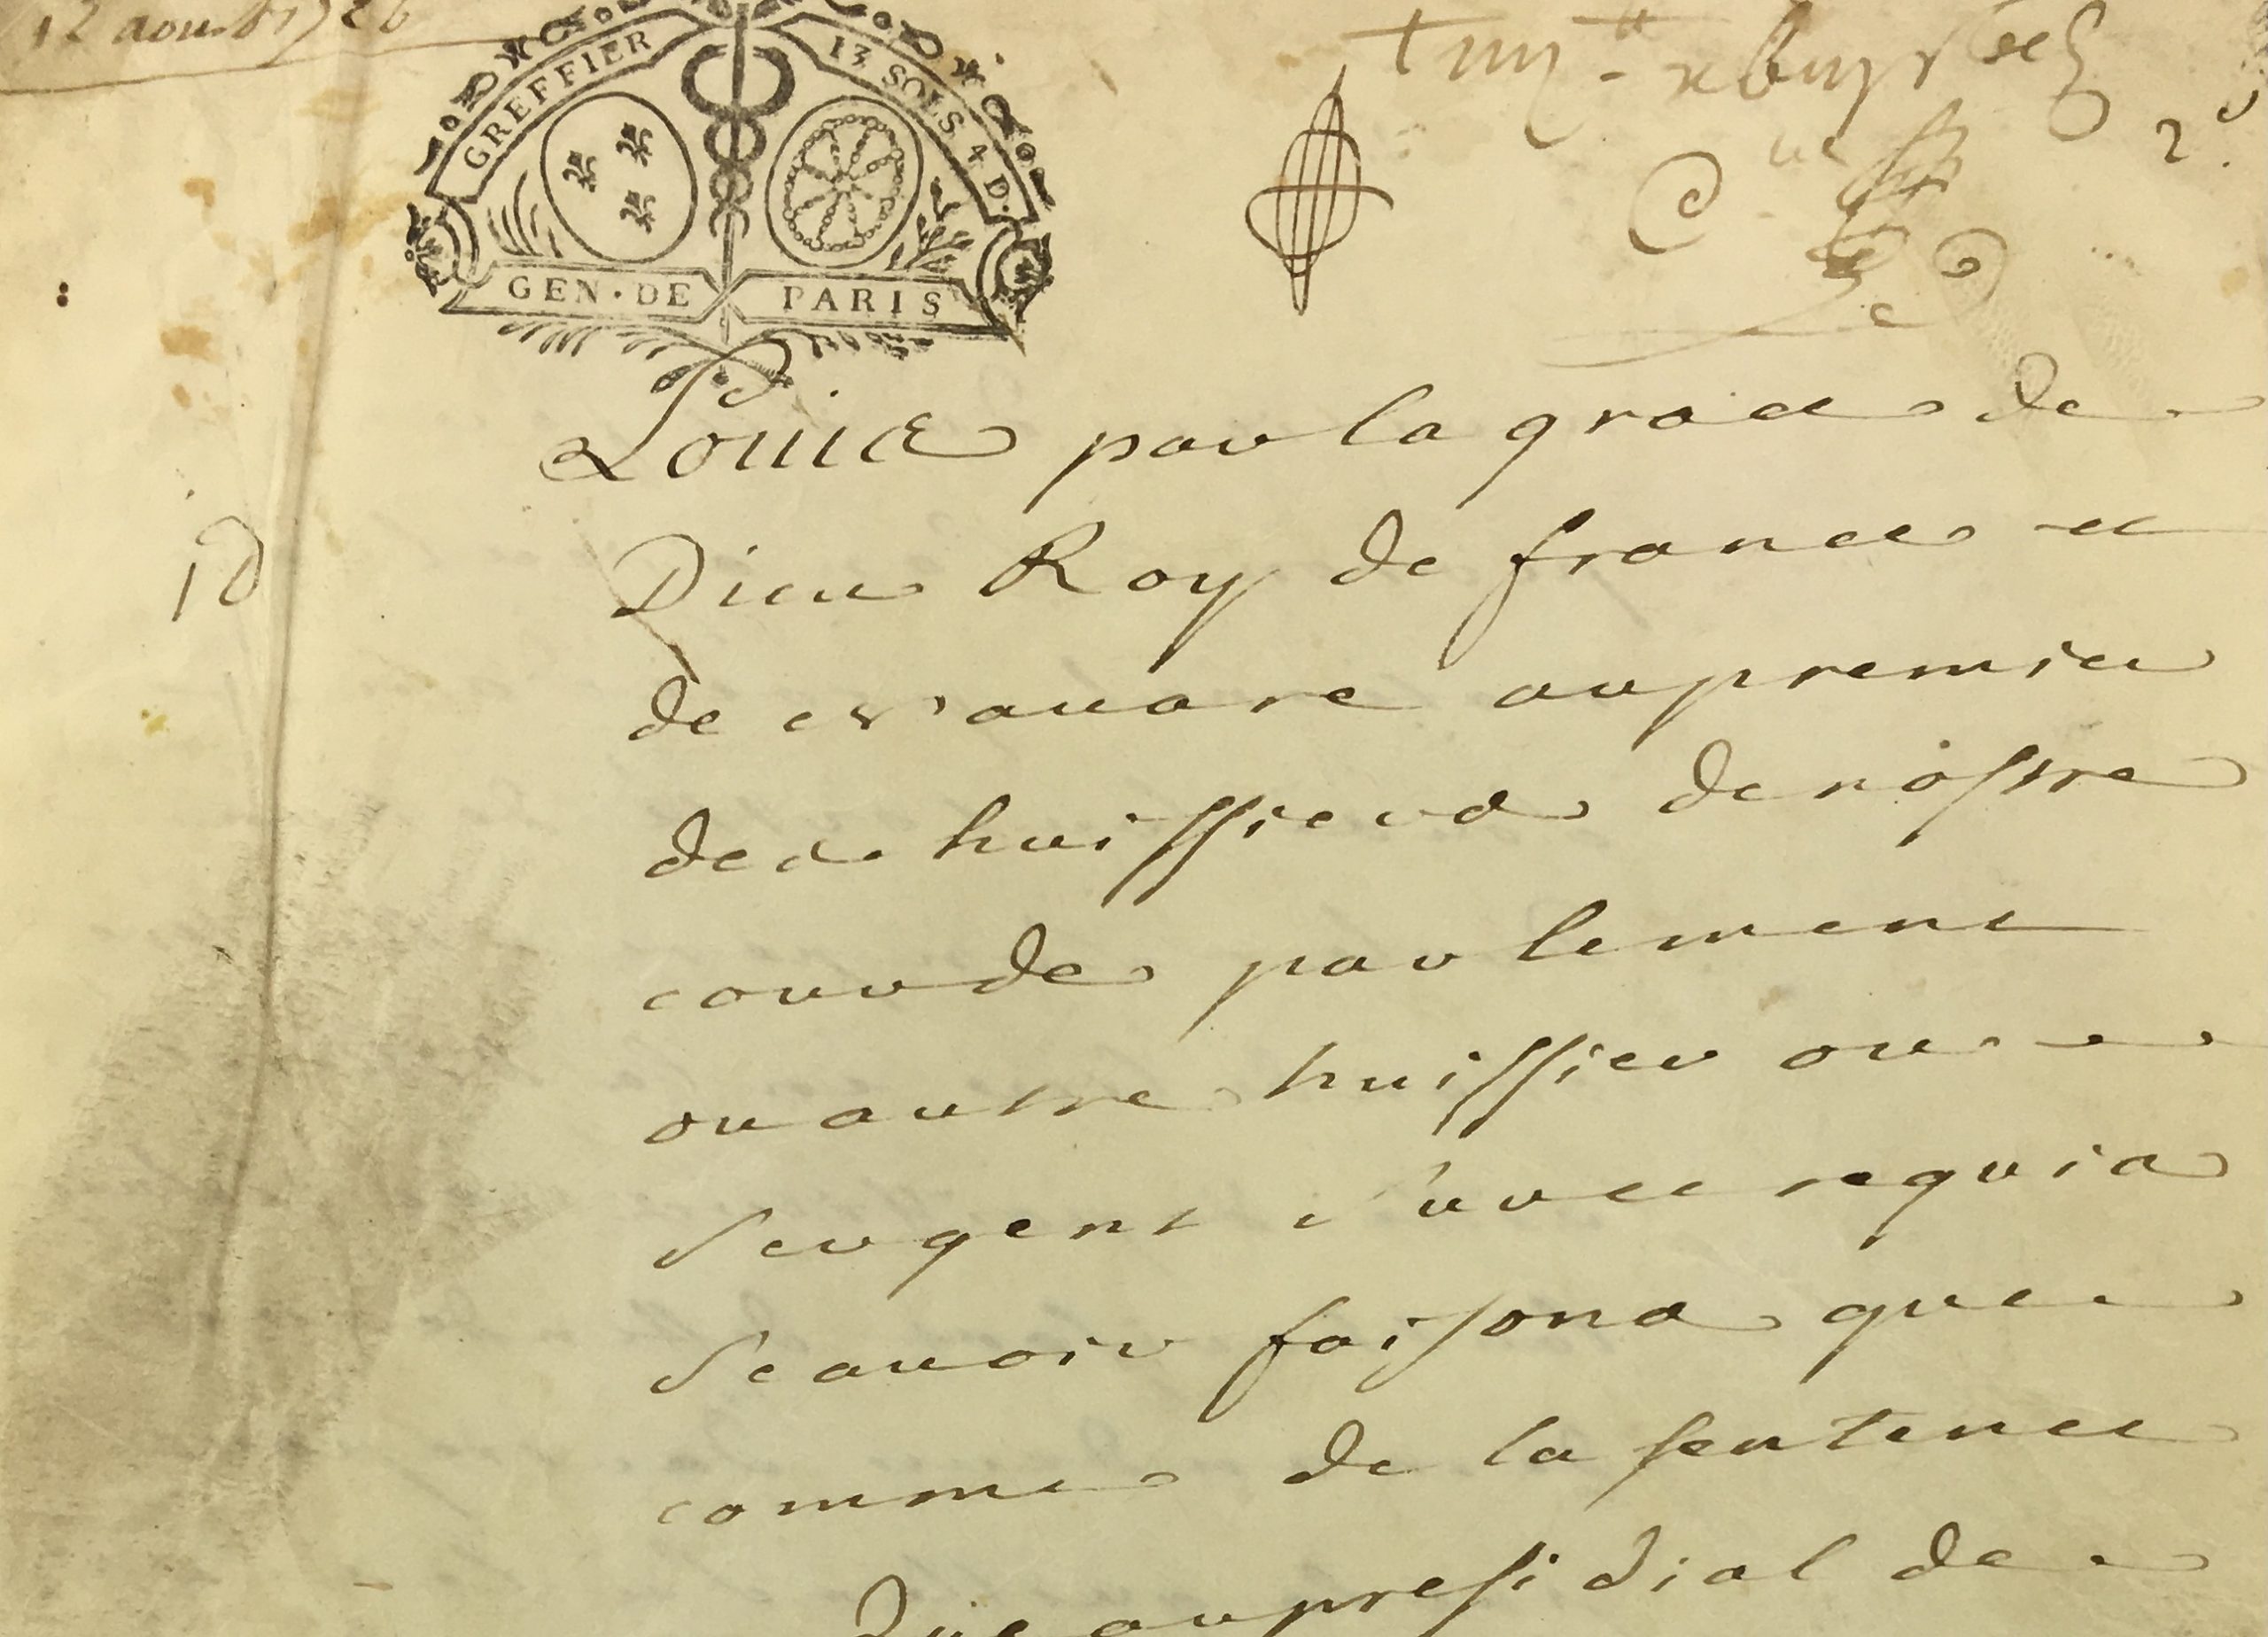 12 aoust 1726
GREFFIER 13 SOLS 4 D.
GEN · DE PARIS
2
Louis par la grace de
Dieu Roy de france et
de Navare au premier
des huissiers de nostre
cour de parlement
ou autre huissier ou
Sergent sur ce requis
Scavoir faisons que
comme de la sentence
au presidial de